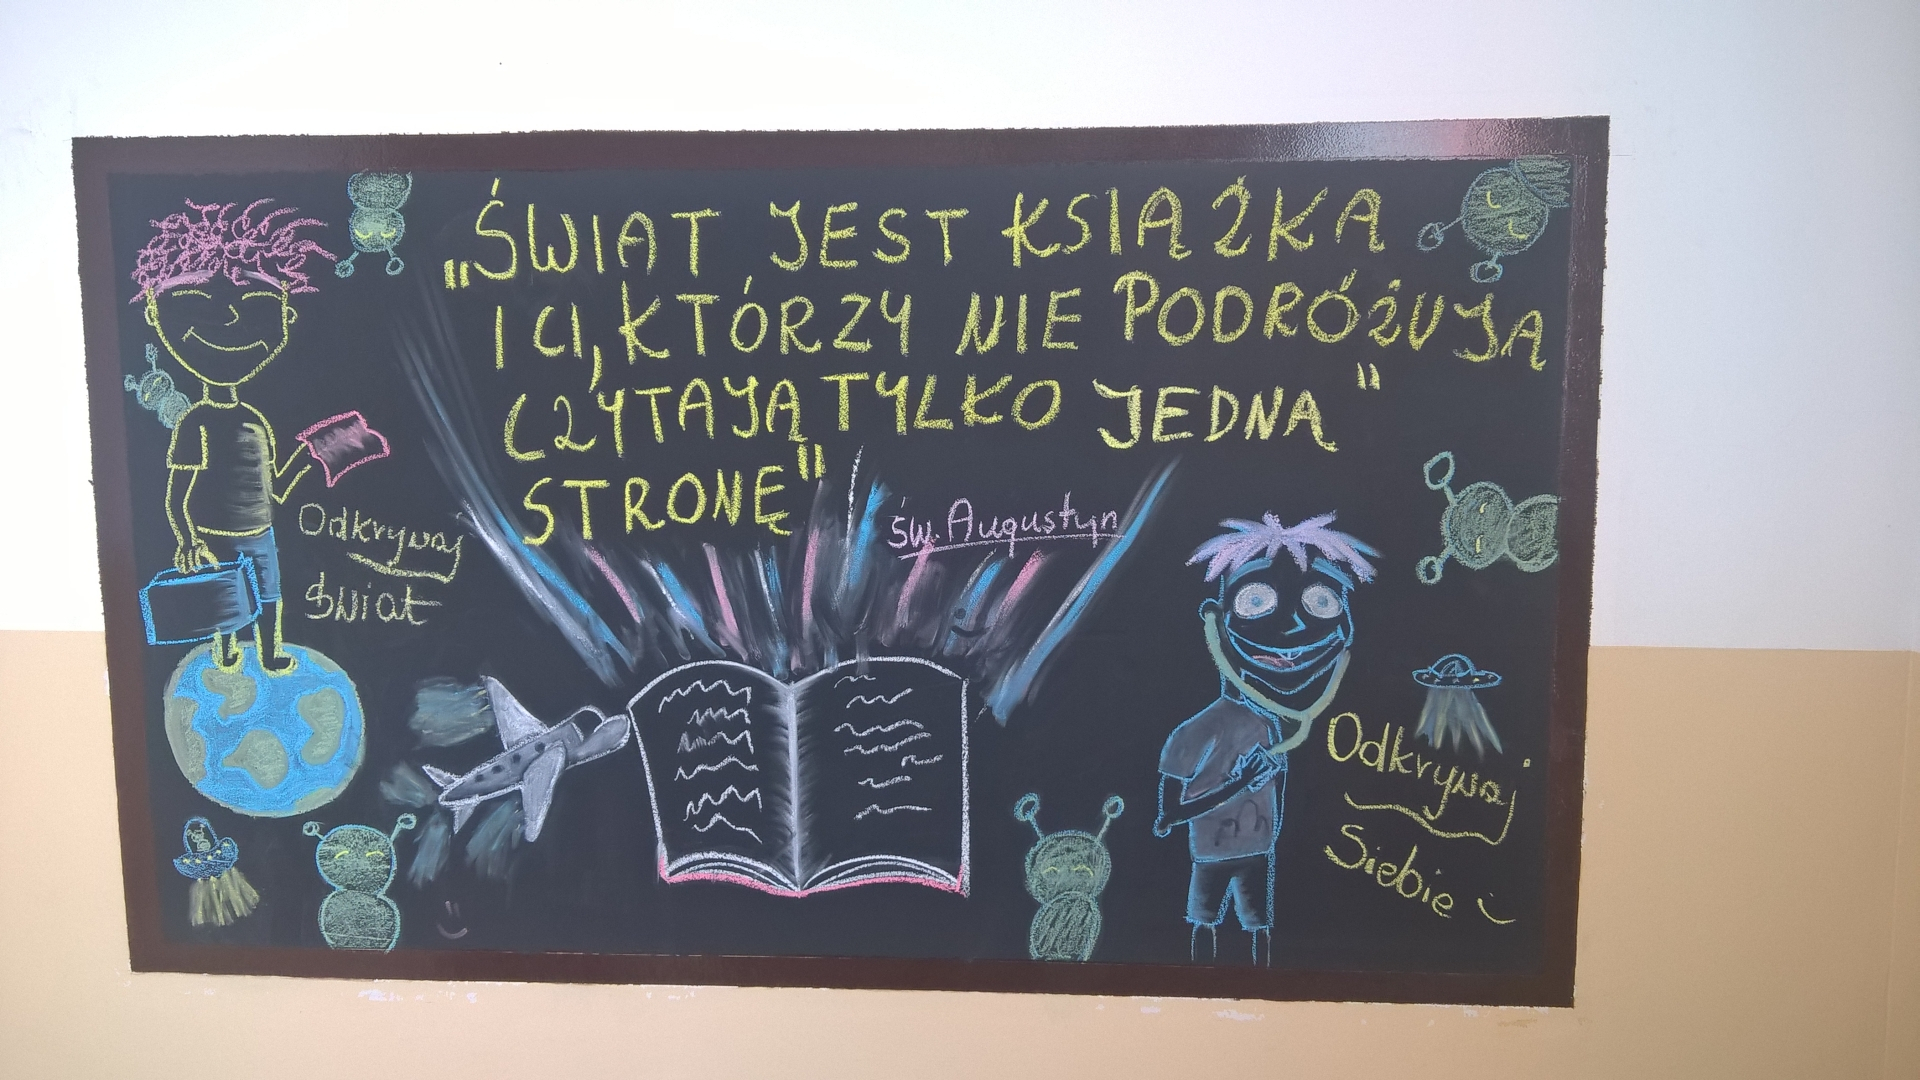 „ŚWIAT JEST KSIĄŻKĄ
I CI, KTÓRZY NIE PODRÓŻUJĄ
CZYTAJĄ TYLKO JEDNĄ"
STRONĘ"
św. Augustyn
Odkrywaj
Świat
Odkrywaj
Siebie